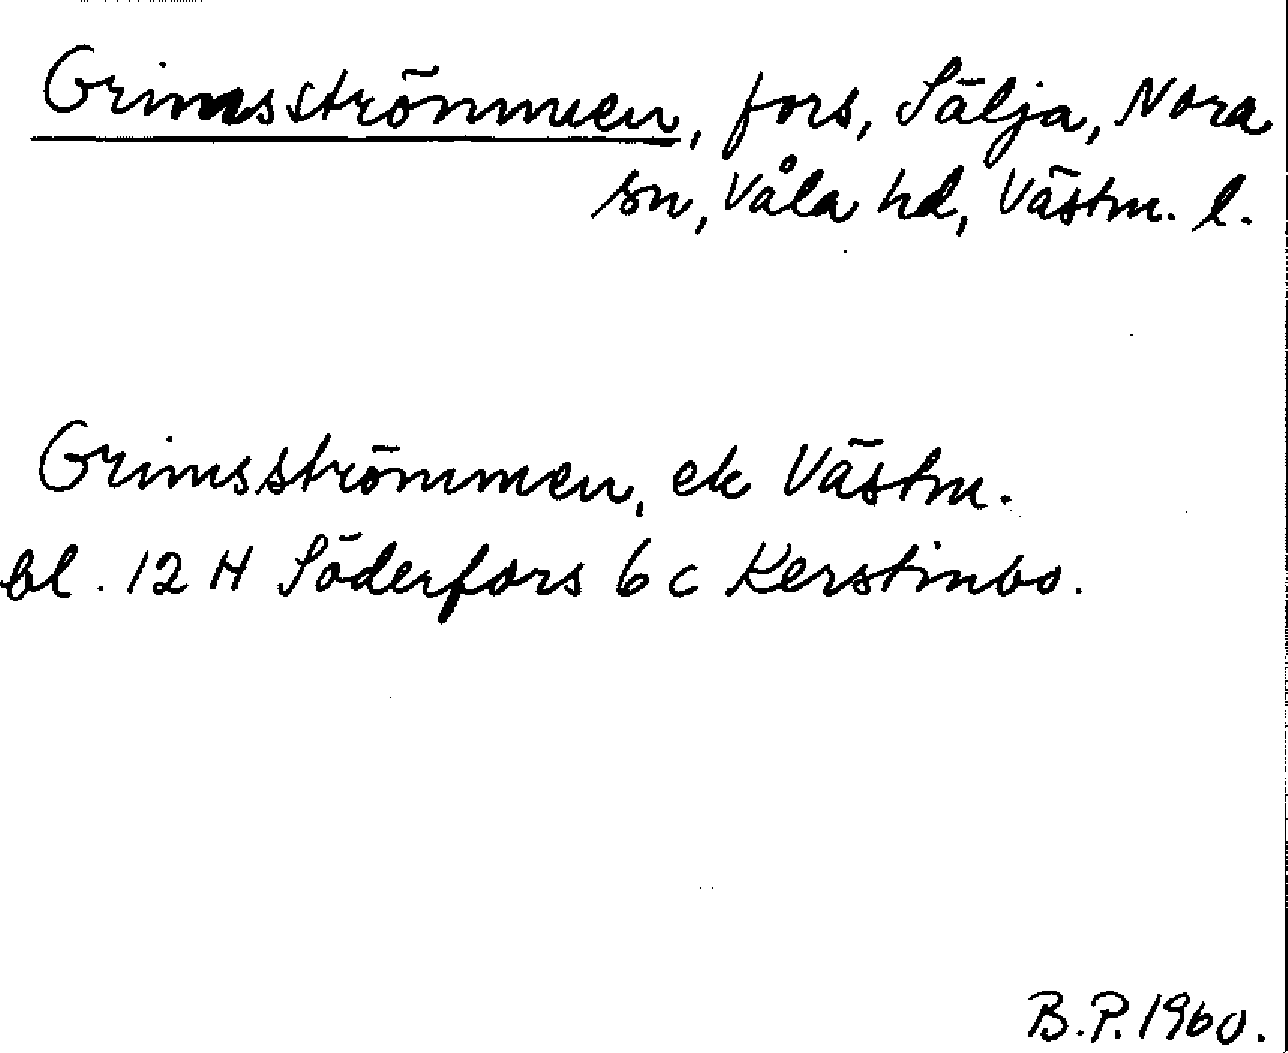 Grimsströmmen, fors, Sälja, Nora
sn, Våla hd, Västm. l.
Grimsströmmen, ek Västm.
bl. 12 H Söderfors 6 c Kerstinbo.
B.P. 1960.